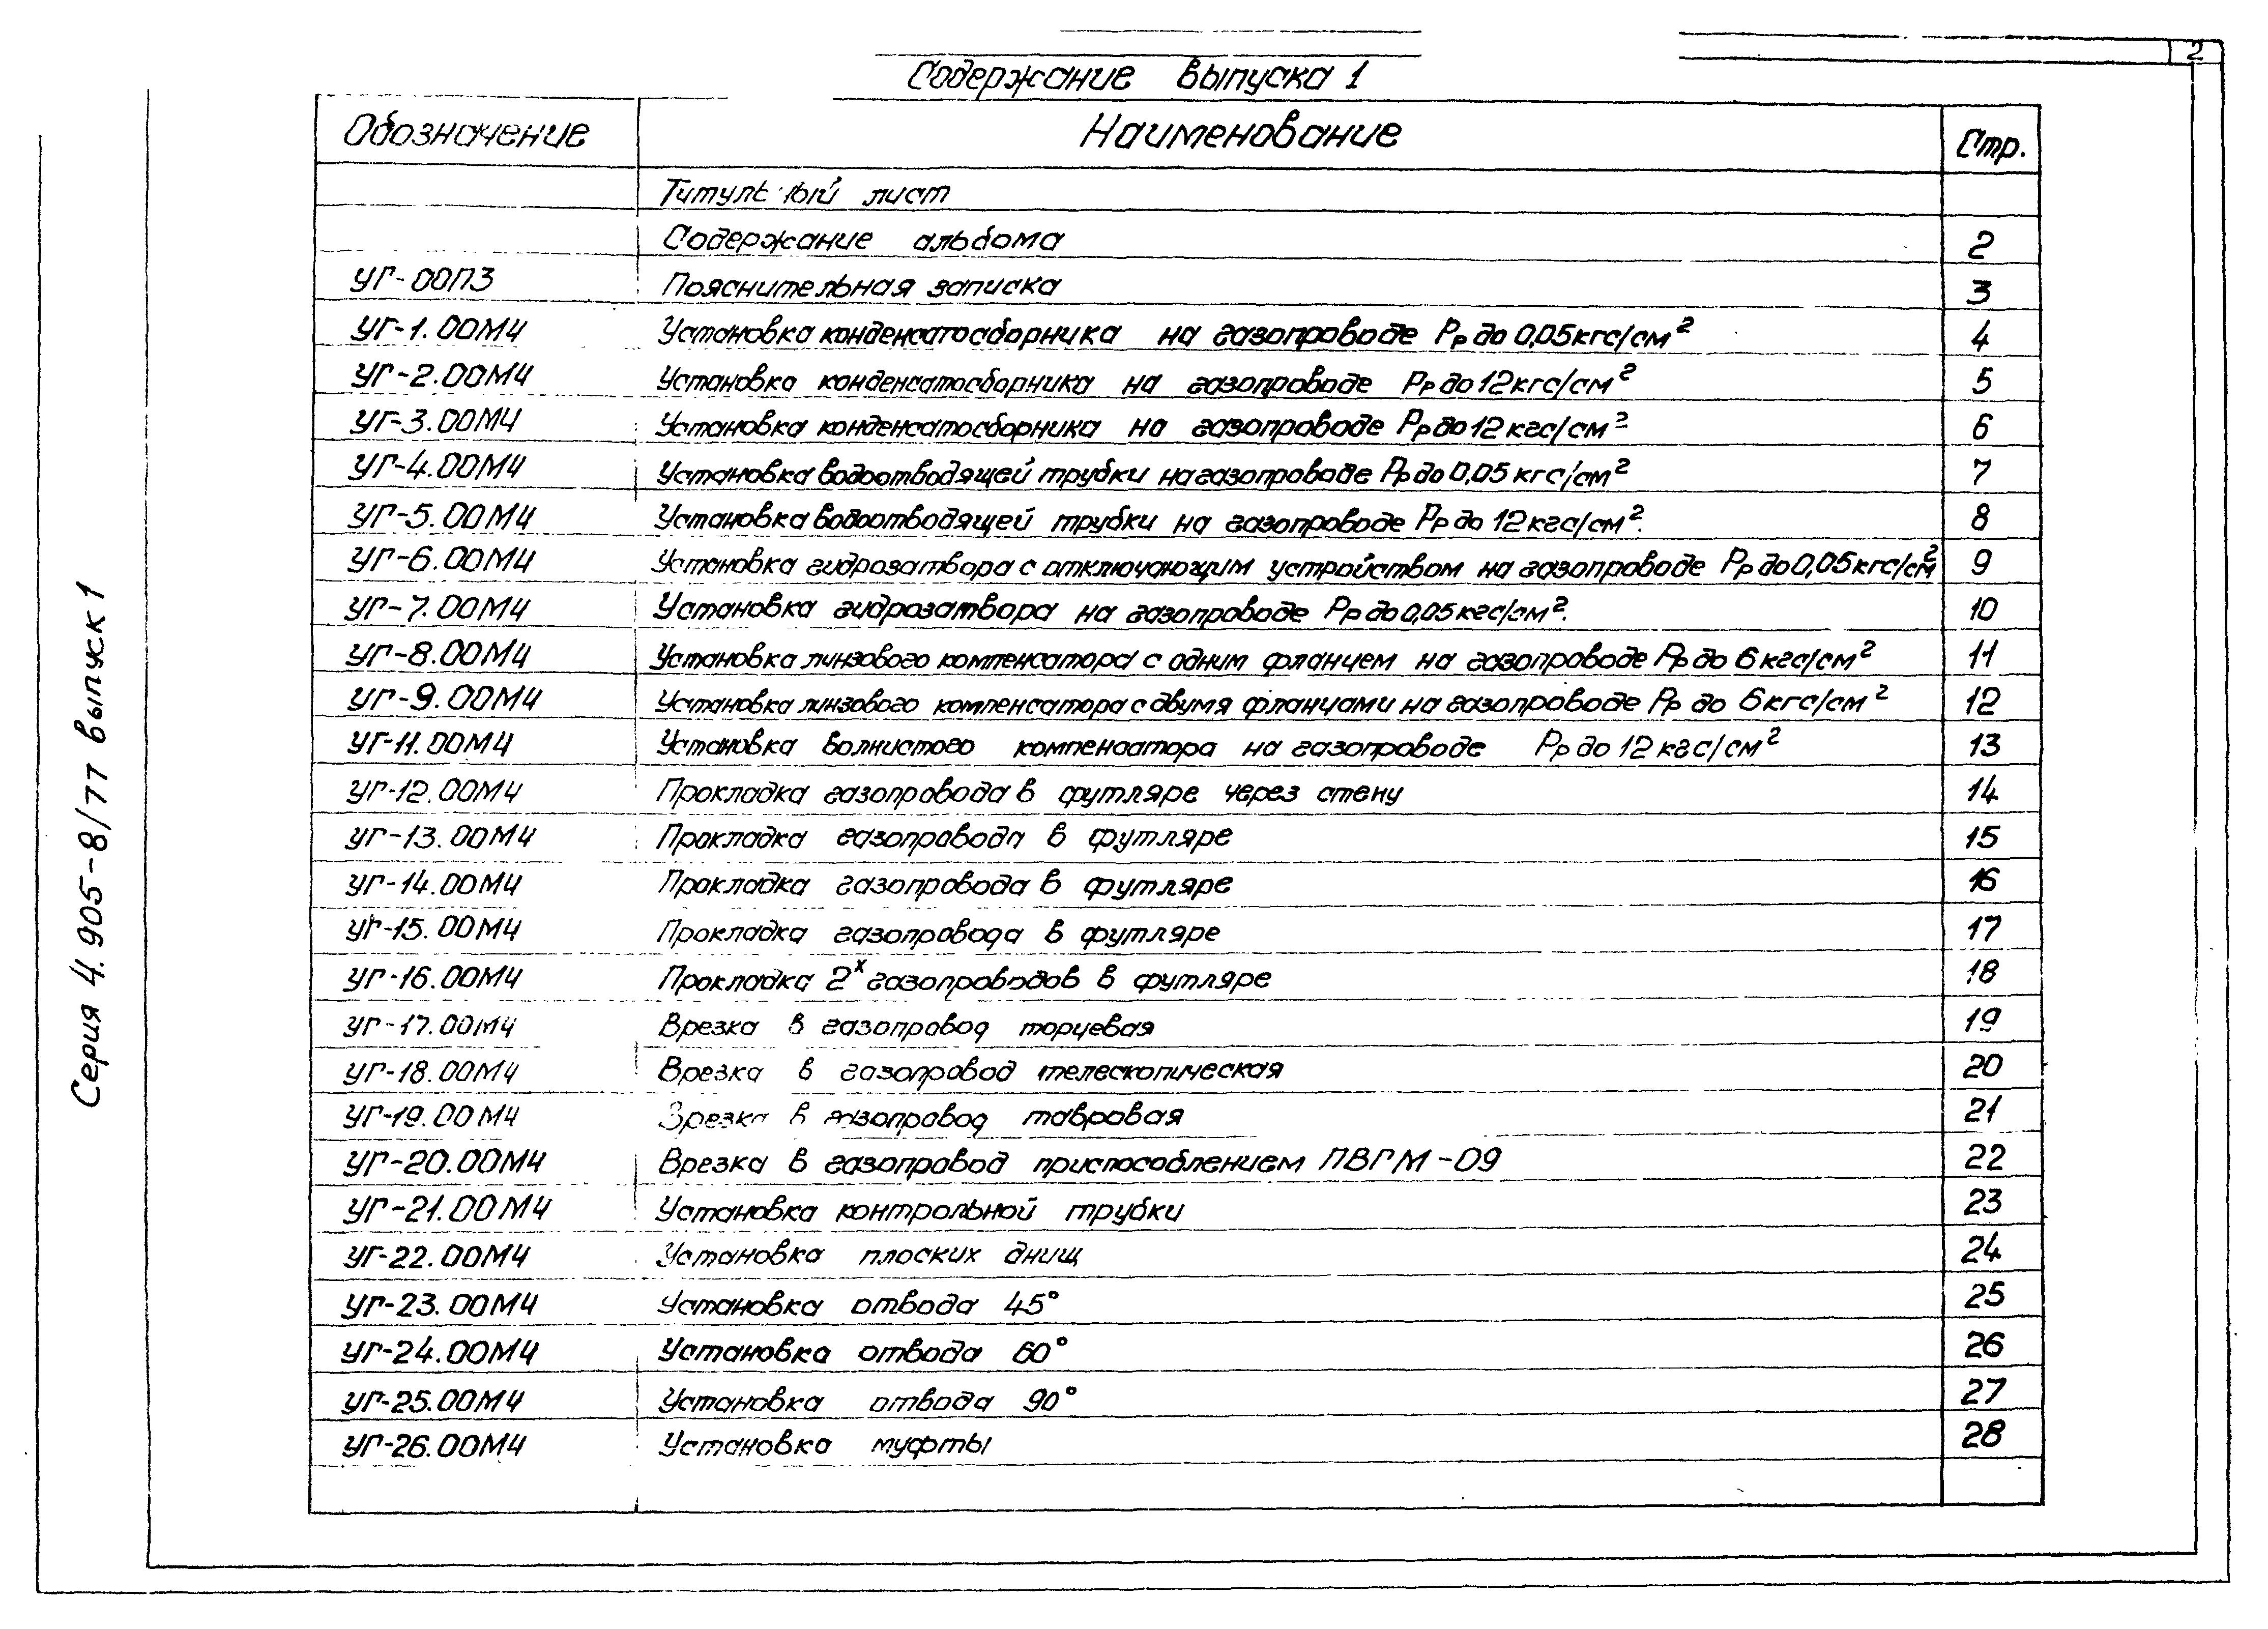 2
Содержание выпуска 1
Обозначение Наименование Стр.
Титульный лист
Содержание альбома 2
УГ-00ПЗ Пояснительная записка 3
УГ-1.00МЧ Установка конденсатосборника на газопроводе Рр до 0,05кгс/см²
4
УГ-2.00МЧ Установка конденсатосборника на газопроводе Рр до 12кгс/см² 5
УГ-3.00МЧ Установка конденсатосборника на газопроводе Рр до 12 кгс/см² 6
УГ-4.00МЧ Установка водоотводящей трубки на газопроводе Рр до 0,05 кгс/см² 7
УГ-5.00МЧ Установка водоотводящей трубки на газопроводе Рр до 12кгс/см². 8
УГ-6.00МЧ Установка гидрозатвора с отключающим устройством на газопроводе Рр до 0,05кгс/см² 9
УГ-7.00МЧ Установка гидрозатвора на газопроводе Рр до 0,05кгс/см². 10
УГ-8.00МЧ Установка линзового компенсатора с одним фланцем на газопроводе Рр до 6кгс/см² 11
УГ-9.00МЧ Установка линзового компенсатора с двумя фланцами на газопроводе Рр до 6кгс/см² 12
УГ-11.00МЧ Установка волнистого компенсатора на газопроводе Рр до 12 кгс/см² 13
УГ-12.00МЧ Прокладка газопровода в футляре через стену 14
УГ-13.00МЧ Прокладка газопровода в футляре 15
УГ-14.00МЧ Прокладка газопровода в футляре 16
УГ-15.00МЧ Прокладка газопровода в футляре 17
УГ-16.00МЧ Прокладка 2х газопроводов в футляре 18
УГ-17.00МЧ Врезка в газопровод торцевая 19
УГ-18.00МЧ Врезка в газопровод телескопическая 20
УГ-19.00МЧ Врезка в газопровод тавровая 21
УГ-20.00МЧ Врезка в газопровод приспособлением ПВГМ-09 22
УГ-21.00МЧ Установка контрольной трубки 23
УГ-22.00МЧ Установка плоских днищ 24
УГ-23.00МЧ Установка отвода 45° 25
УГ-24.00МЧ Установка отвода 60° 26
УГ-25.00МЧ Установка отвода 90° 27
УГ-26.00МЧ Установка муфты 28
Серия 4.905-8/77 выпуск 1